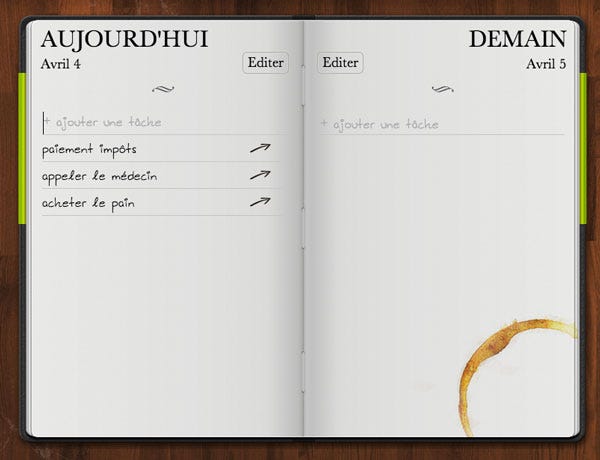 AUJOURD'HUI
Avril 4
Editer
+ ajouter une tâche
paiement impôts
appeler le médecin
acheter le pain
DEMAIN
Editer
Avril 5
+ ajouter une tâche